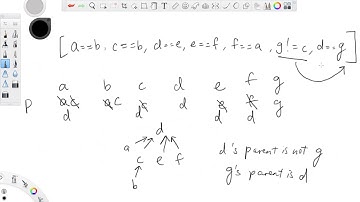 [a==b, c==b, d==e, e==f, f==a, g!=c, d==g]
a b c d e f g
P
d d d d d g
d
a
c e f
b
d's parent is not g
g's parent is d